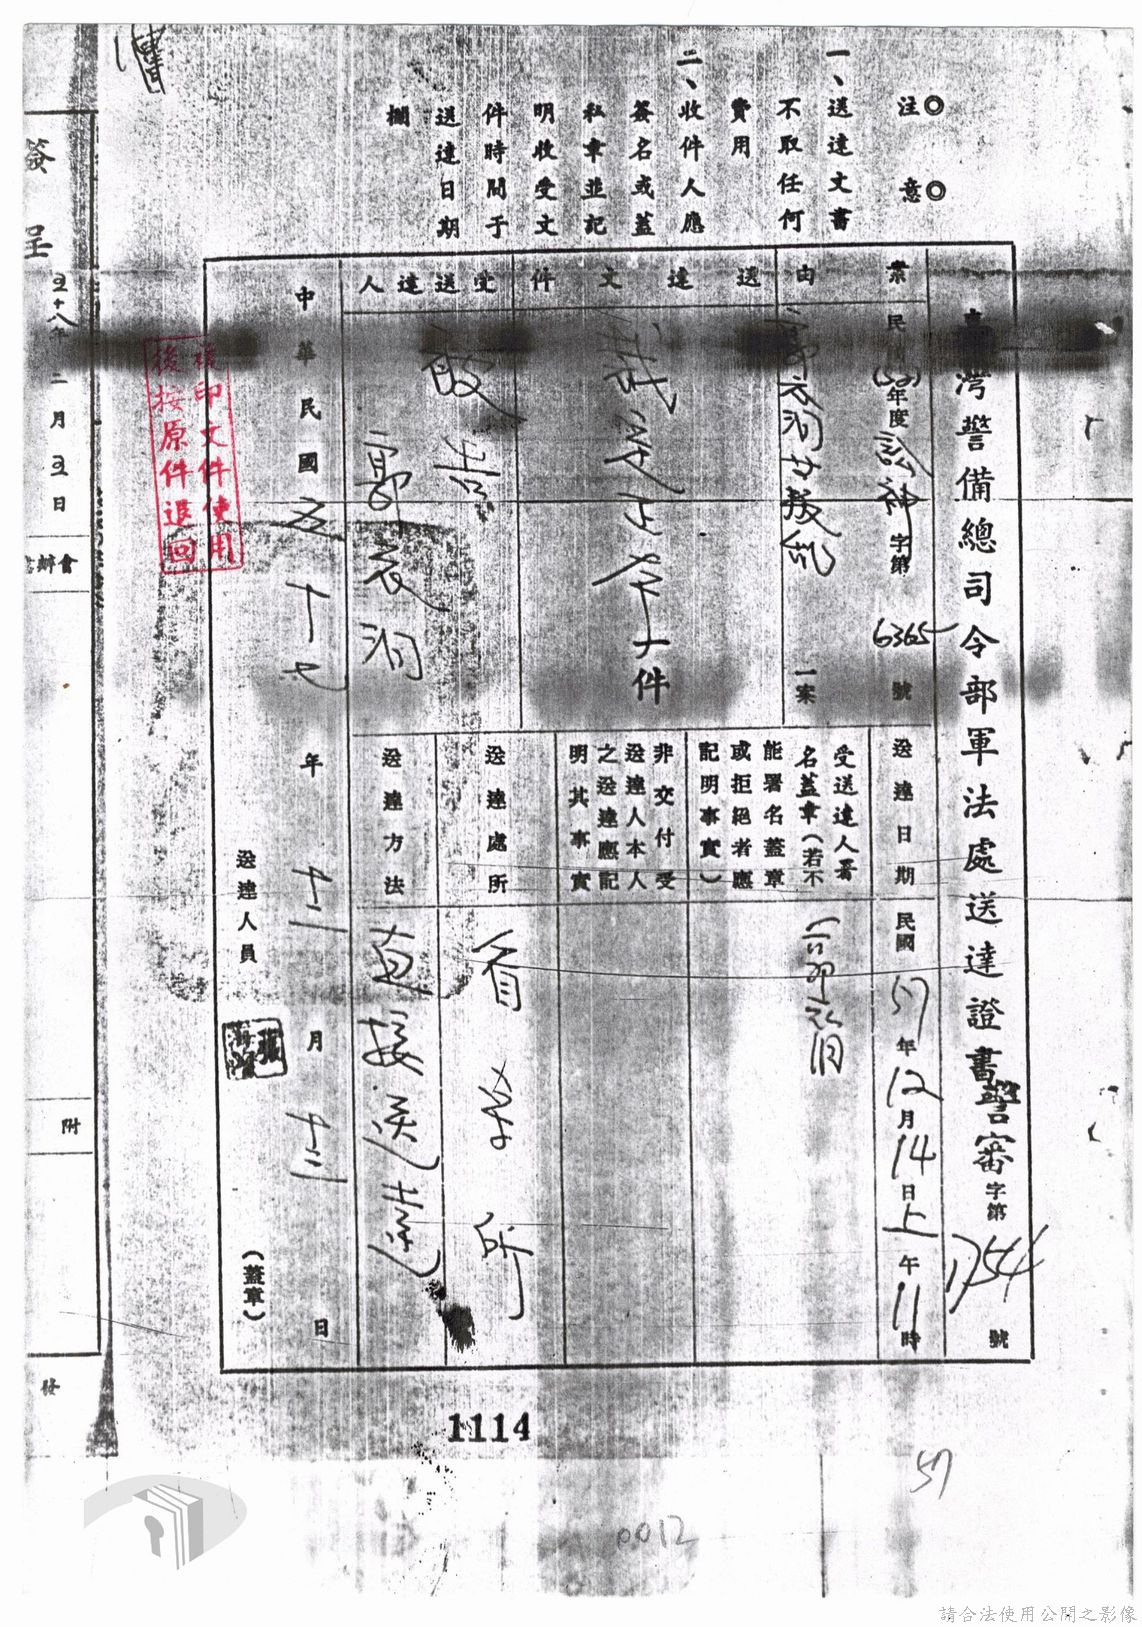 ◎注意◎
一、送達文書
不取任何
費用
二、收件人應
簽名或蓋
私章並記
明收受文
件時間于
送達日期
欄
灣警備總司令部軍法處送達證書警審字第1754號
案
民(50)年度訟神字第6365號
送達日期
民國57年12月14日上午11時
由
一案
受送達人署
名蓋章(若不
能署名蓋章
或拒絕者應
記明事實)
送達文件
件
非交付受
送達人本人
之送達應記
明其事實
受送達人
被告
郭衣洞
送達處所
看守所
送達方法
直接送達
中華民國五十七年十二月十三日
送達人員
(蓋章)
複印文件使用
後按原件退回
簽呈
五十八年二月五日
會辦
附
發
1114
57
0012
請合法使用公開之影像